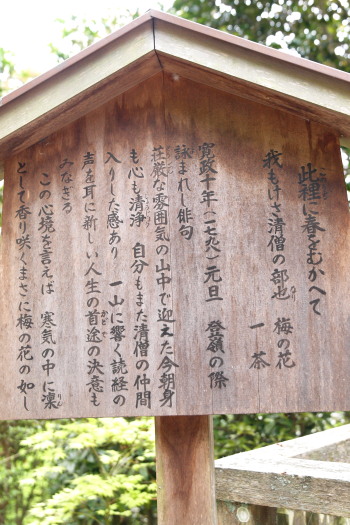 此裡に春をむかへて
我もけさ清僧の部也 梅の花
一茶
寛政十年(一七九八)元旦 登嶺の際
詠まれし俳句
荘厳な雰囲気の山中で迎えた今朝身
も心も清浄 自分もまた清僧の仲間
入りした感あり 一山に響く読経の
声を耳に新しい人生の首途の決意も
みなぎる
この心境を言えば 寒気の中に凜
として香り咲くまさに梅の花の如し